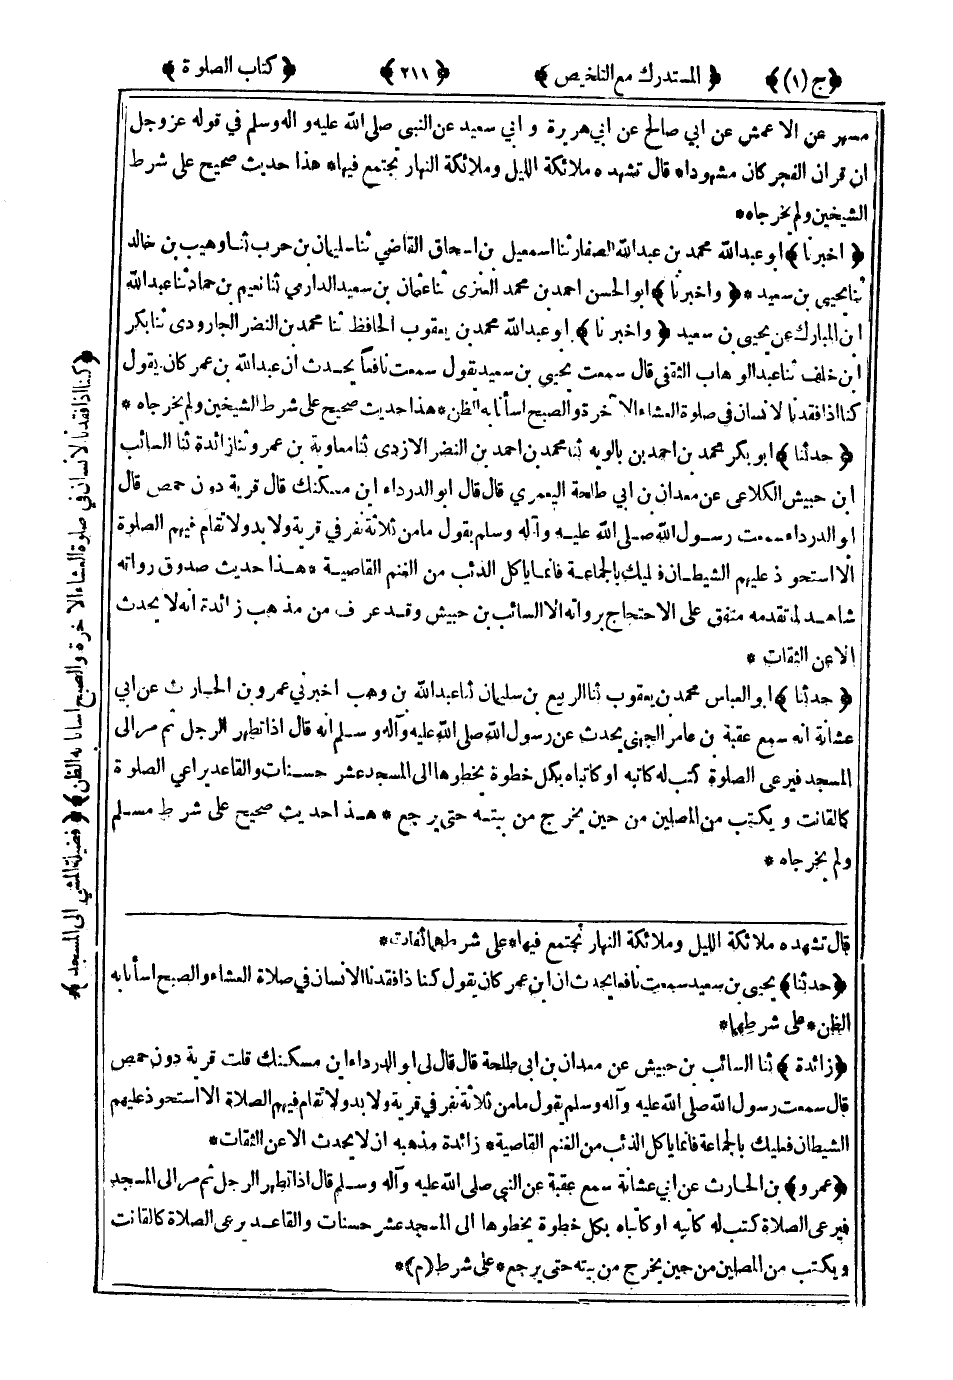 ﴿ج (١)﴾ ﴿المستدرك مع التلخيص﴾ ﴿٢١١﴾ ﴿كتاب الصلوة﴾
مسهر عن الاعمش عن ابي صالح عن ابي هريرة و ابي سعيد عن النبي صلى الله عليه و اله وسلم في قوله عز وجل
ان قران الفجر كان مشهودا* قال تشهده ملائكة الليل وملائكة النهار تجتمع فيها* هذا حديث صحيح على شرط
الشيخين ولم يخرجاه*
﴿اخبرنا﴾ ابو عبدالله محمد بن عبدالله الصفار ثنا اسمعيل بن اسحاق القاضي ثنا سليمان بن حرب ثنا وهيب بن خالد
ثنا يحيى بن سعيد *﴿واخبرنا﴾ ابو الحسن احمد بن محمد العنزى ثنا عثمان بن سعيد الدارمي ثنا نعيم بن حماد ثنا عبدالله
ابن المبارك عن يحيى بن سعيد ﴿واخبرنا﴾ ابو عبدالله محمد بن يعقوب الحافظ ثنا محمد بن النضر الجارودى ثنا بكر
ابن خلف ثنا عبد الوهاب الثقفى قال سمعت يحيى بن سعيد يقول سمعت نافعاً يحدث ان عبدالله بن عمر كان يقول
كنا اذا فقدنا الانسان في صلوة العشاء الآخرة و الصبح اسأنا به الظن* هذا حديث صحيح على شرط الشيخين ولم يخرجاه *
﴿حدثنا﴾ ابو بكر محمد بن احمد بن بالويه ثنا محمد بن احمد بن النضر الازدى ثنا معاوية بن عمرو ثنا زائدة ثنا السائب
ابن حبيش الكلاعى عن معدان بن ابي طلحة اليعمري قال قال ابو الدرداء اين مسكنك قال قرية دون حمص قال
ابو الدرداء سمعت رسول الله صلى الله عليه وآله وسلم يقول مامن ثلاثة نفر في قرية ولا بدو لا تقام فيهم الصلوة
الا استحوذ عليهم الشيطان فعليك بالجماعة فانما ياكل الذئب من الغنم القاصية * هذا حديث صدوق رواته
شاهد لما تقدمه متفق على الاحتجاج برواته الا السائب بن حبيش وقد عرف من مذهب زائدة انه لا يحدث
الا عن الثقات *
﴿حدثنا﴾ ابو العباس محمد بن يعقوب ثنا الربيع بن سليمان ثنا عبدالله بن وهب اخبرني عمرو بن الحارث عن ابي
عشانة انه سمع عقبة بن عامر الجهني يحدث عن رسول الله صلى الله عليه وآله وسلم انه قال اذا تطهر الرجل ثم مر الى
المسجد فيرعى الصلوة كتب له كاتبه او كاتباه بكل خطوة يخطوها الى المسجد عشر حسنات والقاعد يراعي الصلوة
كالقانت ويكتب من المصلين من حين يخرج من بيته حتى يرجع * هذا حديث صحيح على شرط مسلم
ولم يخرجاه *
قال تشهده ملائكة الليل وملائكة النهار تجتمع فيها* على شرطهما
﴿حدثنا﴾ يحيى بن سعيد سمعت نافعا يحدث ان ابن عمر كان يقول كنا اذا فقدنا الانسان في صلاة العشاء والصبح اسأنا به
الظن* على شرطهما*
﴿زائدة﴾ ثنا السائب بن حبيش عن معدان بن ابي طلحة قال قال لي ابو الدرداء اين مسكنك قلت قرية دون حمص
قال سمعت رسول الله صلى الله عليه وآله وسلم يقول مامن ثلاثة نفر في قرية ولا بدو لا تقام فيهم الصلاة الا استحوذ عليهم
الشيطان فعليك بالجماعة فانما ياكل الذئب من الغنم القاصية* زائدة مذهبه ان لا يحدث الا عن الثقات*
﴿عمرو﴾ بن الحارث عن ابي عشانة سمع عقبة عن النبي صلى الله عليه وآله وسلم قال اذا تطهر الرجل ثم مر الى المسجد
فيرعى الصلاة كتب له كاتبه او كاتباه بكل خطوة يخطوها الى المسجد عشر حسنات والقاعد يرعى الصلاة كالقانت
ويكتب من المصلين من حين يخرج من بيته حتى يرجع* على شرط (م)*
﴿كنا اذا فقدنا الانسان في صلوة العشاء الاخرة والصبح اسأنا به الظن﴾ ﴿فضيلة المشي الى المسجد﴾